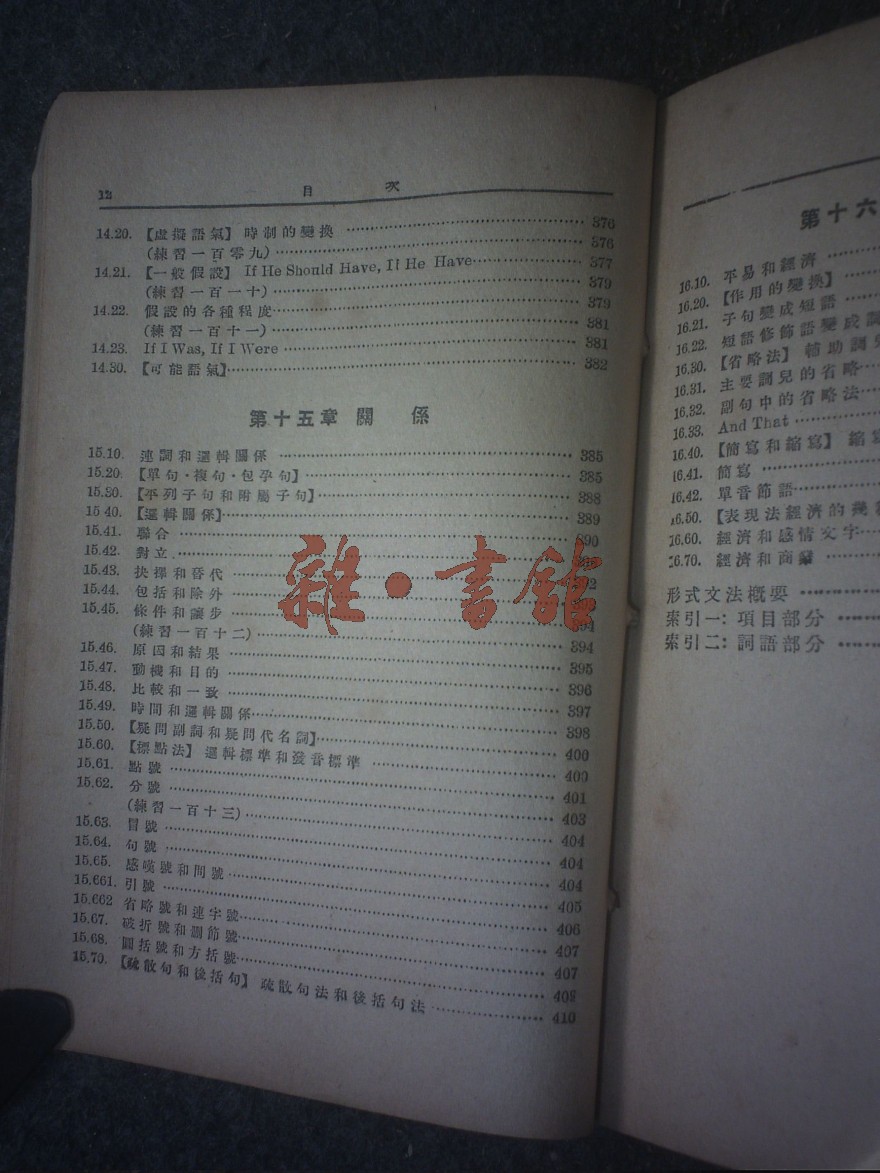 12 目 次
14.20. 【虛擬語氣】 時制的變換 376
(練習一百零九) 376
14.21. 【一般假設】 If He Should Have, If He Have 377
(練習一百一十) 379
14.22. 假設的各種程度 379
(練習一百十一) 381
14.23. If I Was, If I Were 381
14.30. 【可能語氣】 382
第十五章 關 係
15.10. 連詞和邏輯關係 385
15.20. 【單句·複句·包孕句】 385
15.30. 【平列子句和附屬子句】 388
15.40. 【邏輯關係】 389
15.41. 聯合 390
15.42. 對立
15.43. 抉擇和替代
15.44. 包括和除外
15.45. 條件和讓步
(練習一百十二) 394
15.46. 原因和結果 394
15.47. 動機和目的 395
15.48. 比較和一致 396
15.49. 時間和邏輯關係 397
15.50. 【疑問副詞和疑問代名詞】 398
15.60. 【標點法】 邏輯標準和發音標準 400
15.61. 點號 400
15.62. 分號 401
(練習一百十三) 403
15.63. 冒號 404
15.64. 句號 404
15.65. 感嘆號和問號 404
15.661. 引號 405
15.662 省略號和連字號 406
15.67. 破折號和調節號 407
15.68. 圓括號和方括號 407
15.70. 【疏散句和後括句】 疏散句法和後括句法 410
第十六
16.10. 平易和經濟
16.20. 【作用的變換】
16.21. 子句變成短語
16.22. 短語修飾語變成
16.30. 【省略法】 輔助詞
16.31. 主要詞兒的省略
16.32. 副句中的省略法
16.33. And That
16.40. 【簡寫和縮寫】 縮寫
16.41. 簡寫
16.42. 單音節語
16.50. 【表現法經濟的
16.60. 經濟和感情文字
16.70. 經濟和商
形式文法概要
索引一: 項目部分
索引二: 詞語部分
雜·書館